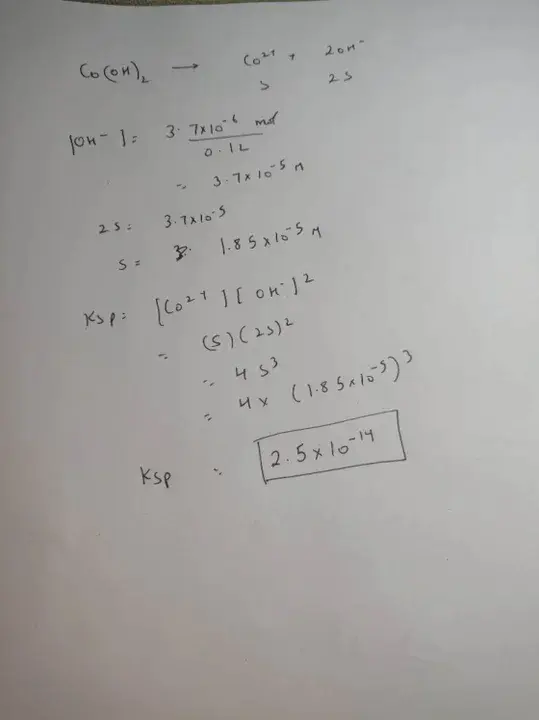 Co(OH)₂ → Co²⁺ + 2OH⁻
S 2S
[OH⁻] = 3.7×10⁻⁶ mol
0.1L
= 3.7×10⁻⁵ M
2S = 3.7×10⁻⁵
S = 1.85×10⁻⁵ M
Ksp = [Co²⁺][OH⁻]²
= (S)(2S)²
= 4S³
= 4× (1.85×10⁻⁵)³
Ksp = 2.5×10⁻¹⁴